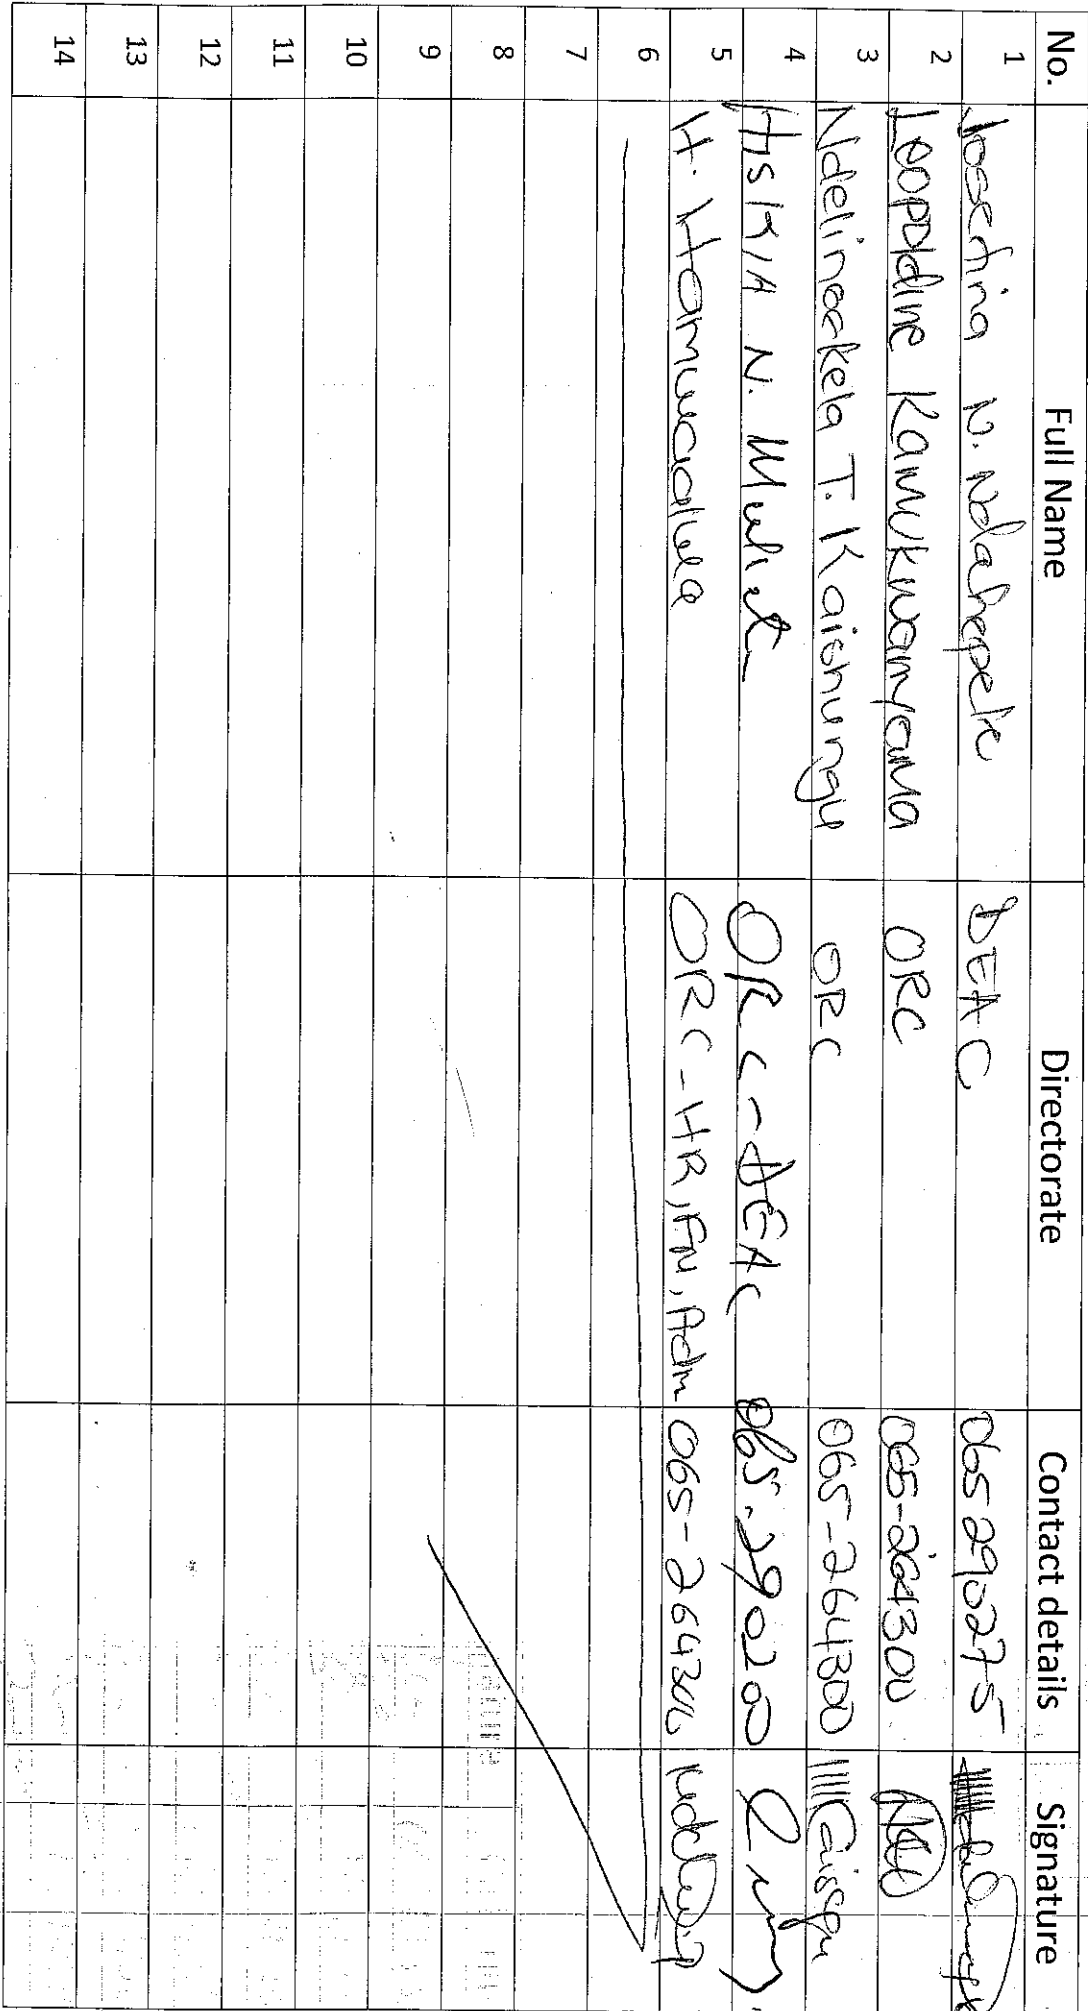 No. Full Name Directorate Contact details Signature
1 Josefina N. Ndahepele DEAC 065 290275
2 Leopoldine Kamukwanyama ORC 065-264300
3 Ndelinaekela T. Kaishungu ORC 065-264300
4 N. ORC-DEAC 065.290200
5 H. ORC-HR, FN, Adm 065-264306
6
7
8
9
10
11
12
13
14